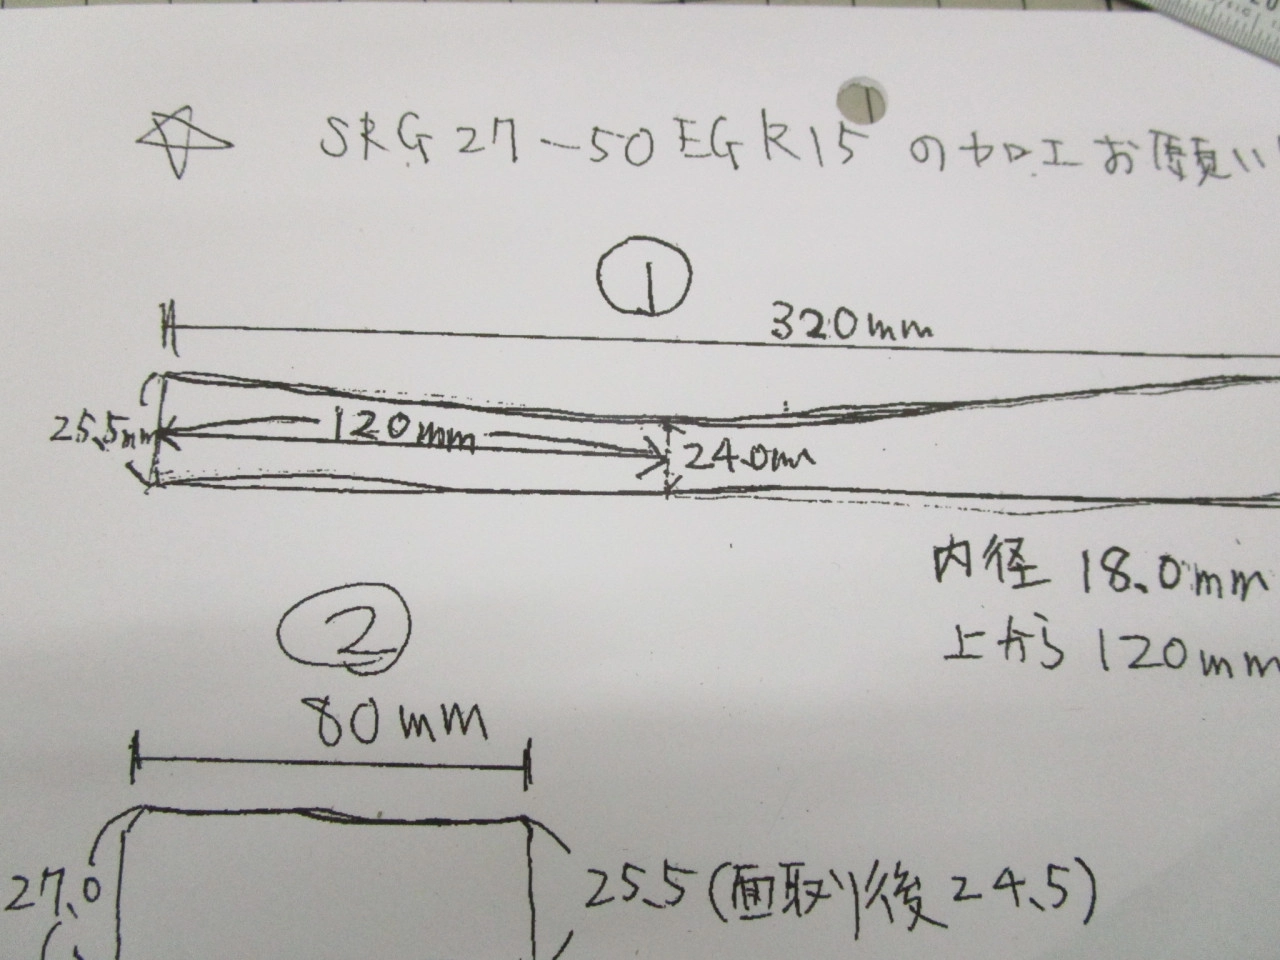 ☆ SRG27-50EGR15の加工お願い
①
320mm
25.5mm
120mm
24.0mm
内径 18.0mm
上から 120mm
②
80mm
27.0
25.5(面取り後24.5)